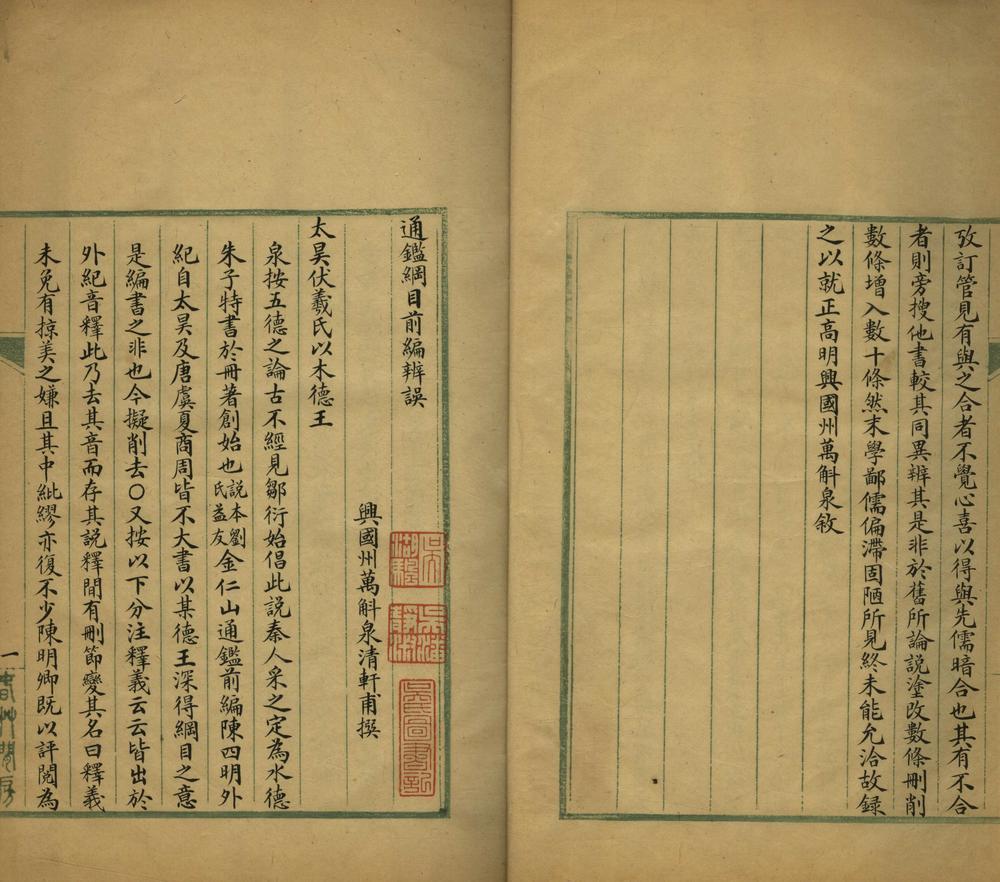 攷訂管見有與之合者不覺心喜以得與先儒暗合也其有不合
者則旁搜他書較其同異辨其是非於舊所論說塗改數條刪削
數條增入數十條然末學鄙儒偏滯固陋所見終未能允洽故録
之以就正高明興國州萬斛泉敘
通鑑綱目前編辨誤
興國州萬斛泉清軒甫撰
太昊伏羲氏以木德王
泉按五德之論古不經見鄒衍始倡此説秦人采之定為水德
朱子特書於冊著創始也説本劉氏益友金仁山通鑑前編陳四明外
紀自太昊及唐虞夏商周皆不大書以某德王深得綱目之意
是編書之非也今擬削去〇又按以下分注釋義云云皆出於
外紀音釋此乃去其音而存其説釋間有刪節變其名曰釋義
未免有掠美之嫌且其中紕繆亦復不少陳明卿既以評閱為
一